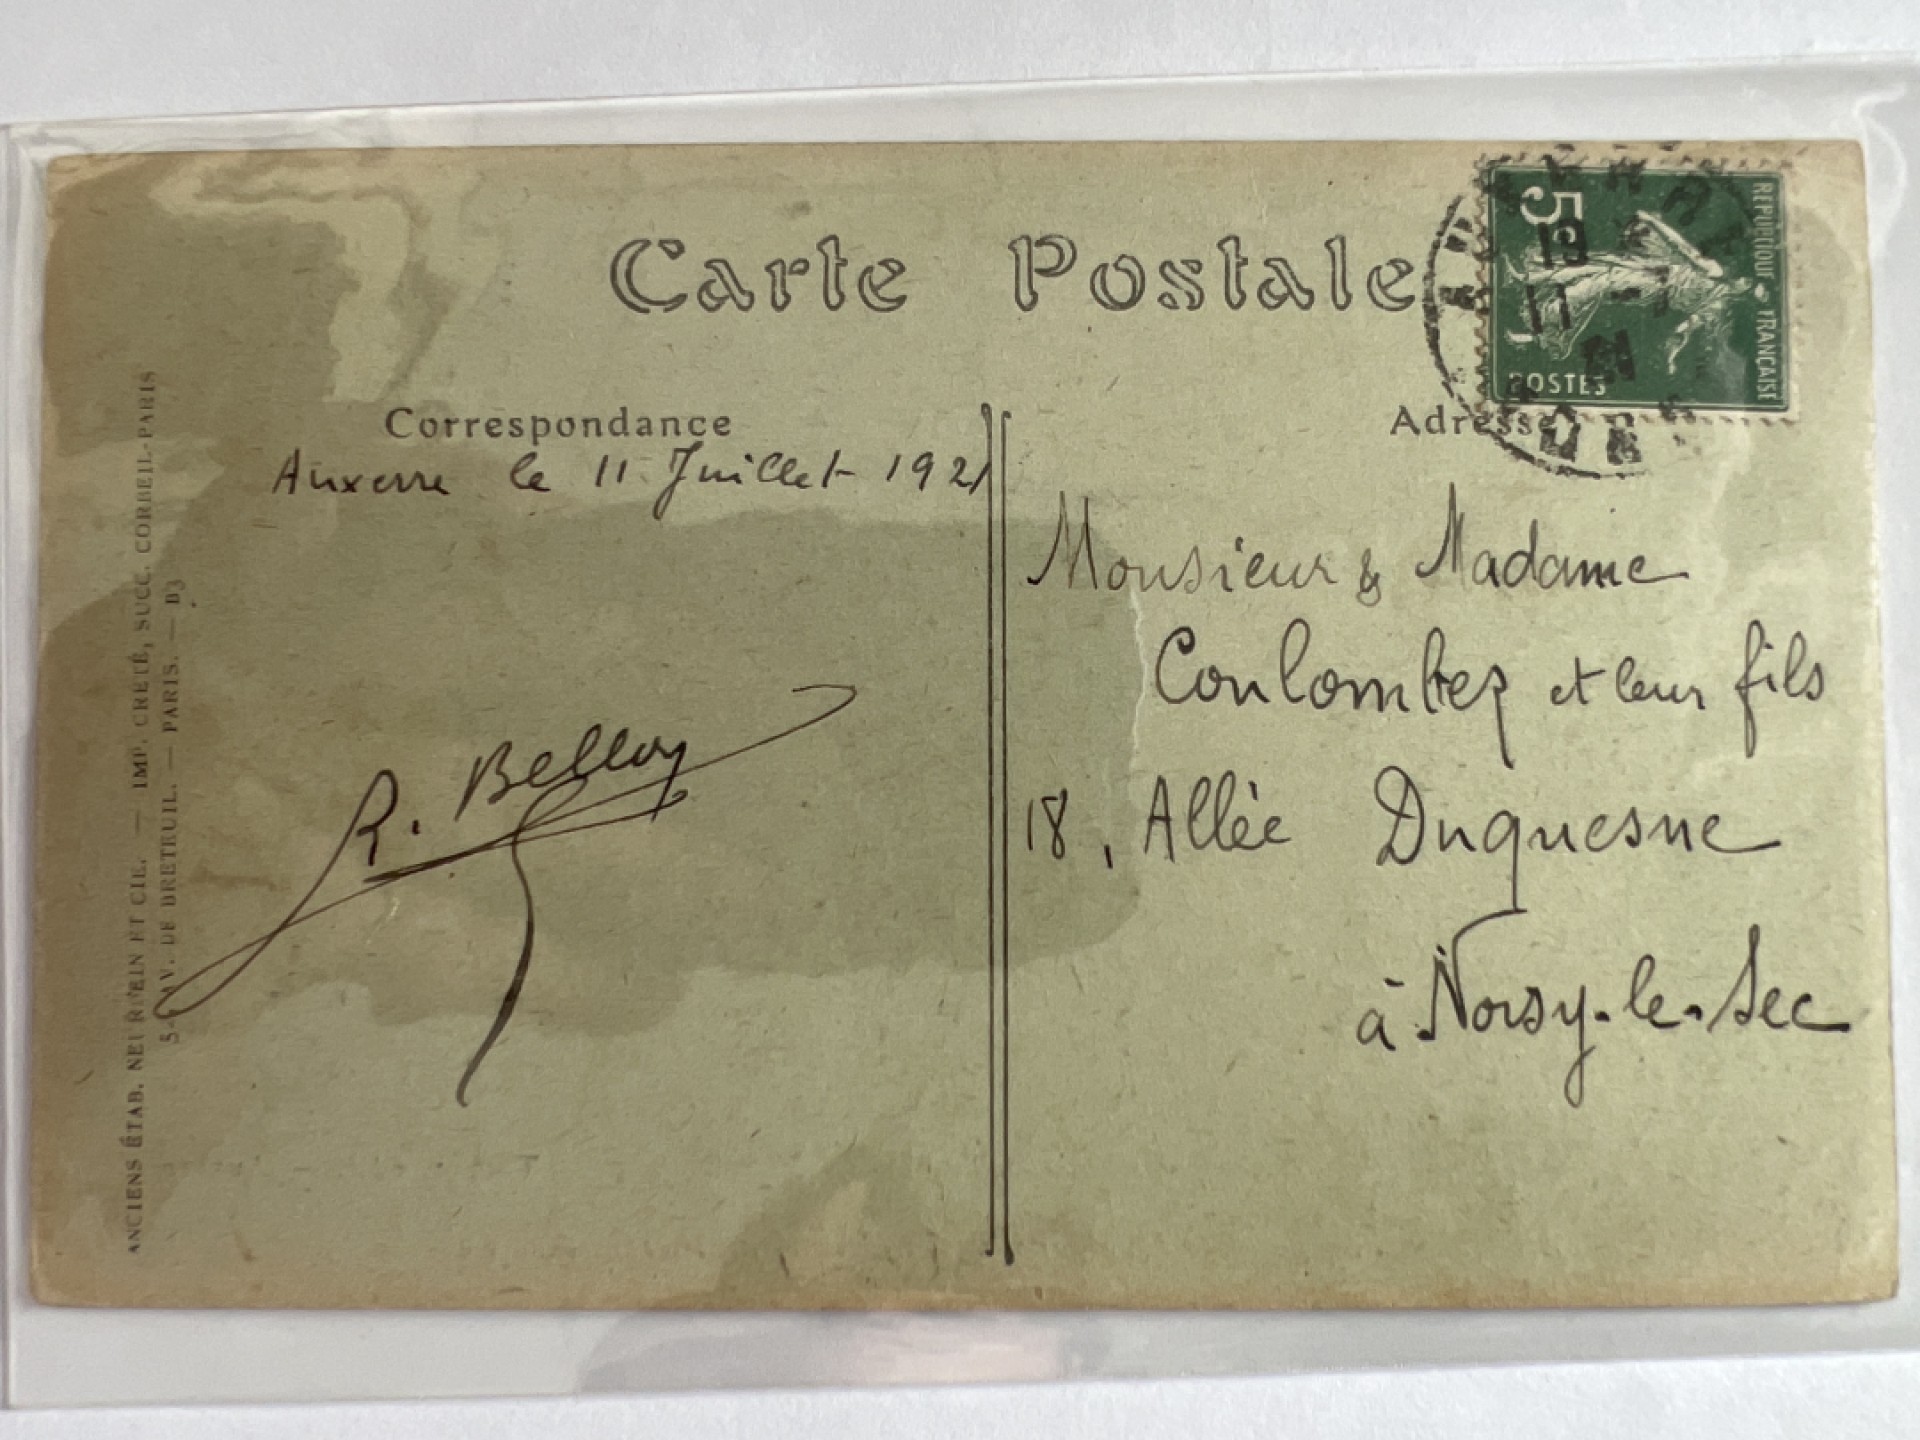 Carte Postale
Correspondance
Adresse
REPUBLIQUE FRANÇAISE
5c
POSTES
19
11 -7
21
Auxerre le 11 Juillet 1921
R. Belloy
Monsieur & Madame
Coulombez et leur fils
18, Allée Duquesne
à Noisy-le-Sec
ANCIENS ÉTAB. NEURDEIN ET CIE. — IMP. CRÉTÉ, SUCC. CORBEIL-PARIS
AV. DE BRETEUIL. — PARIS. — B3